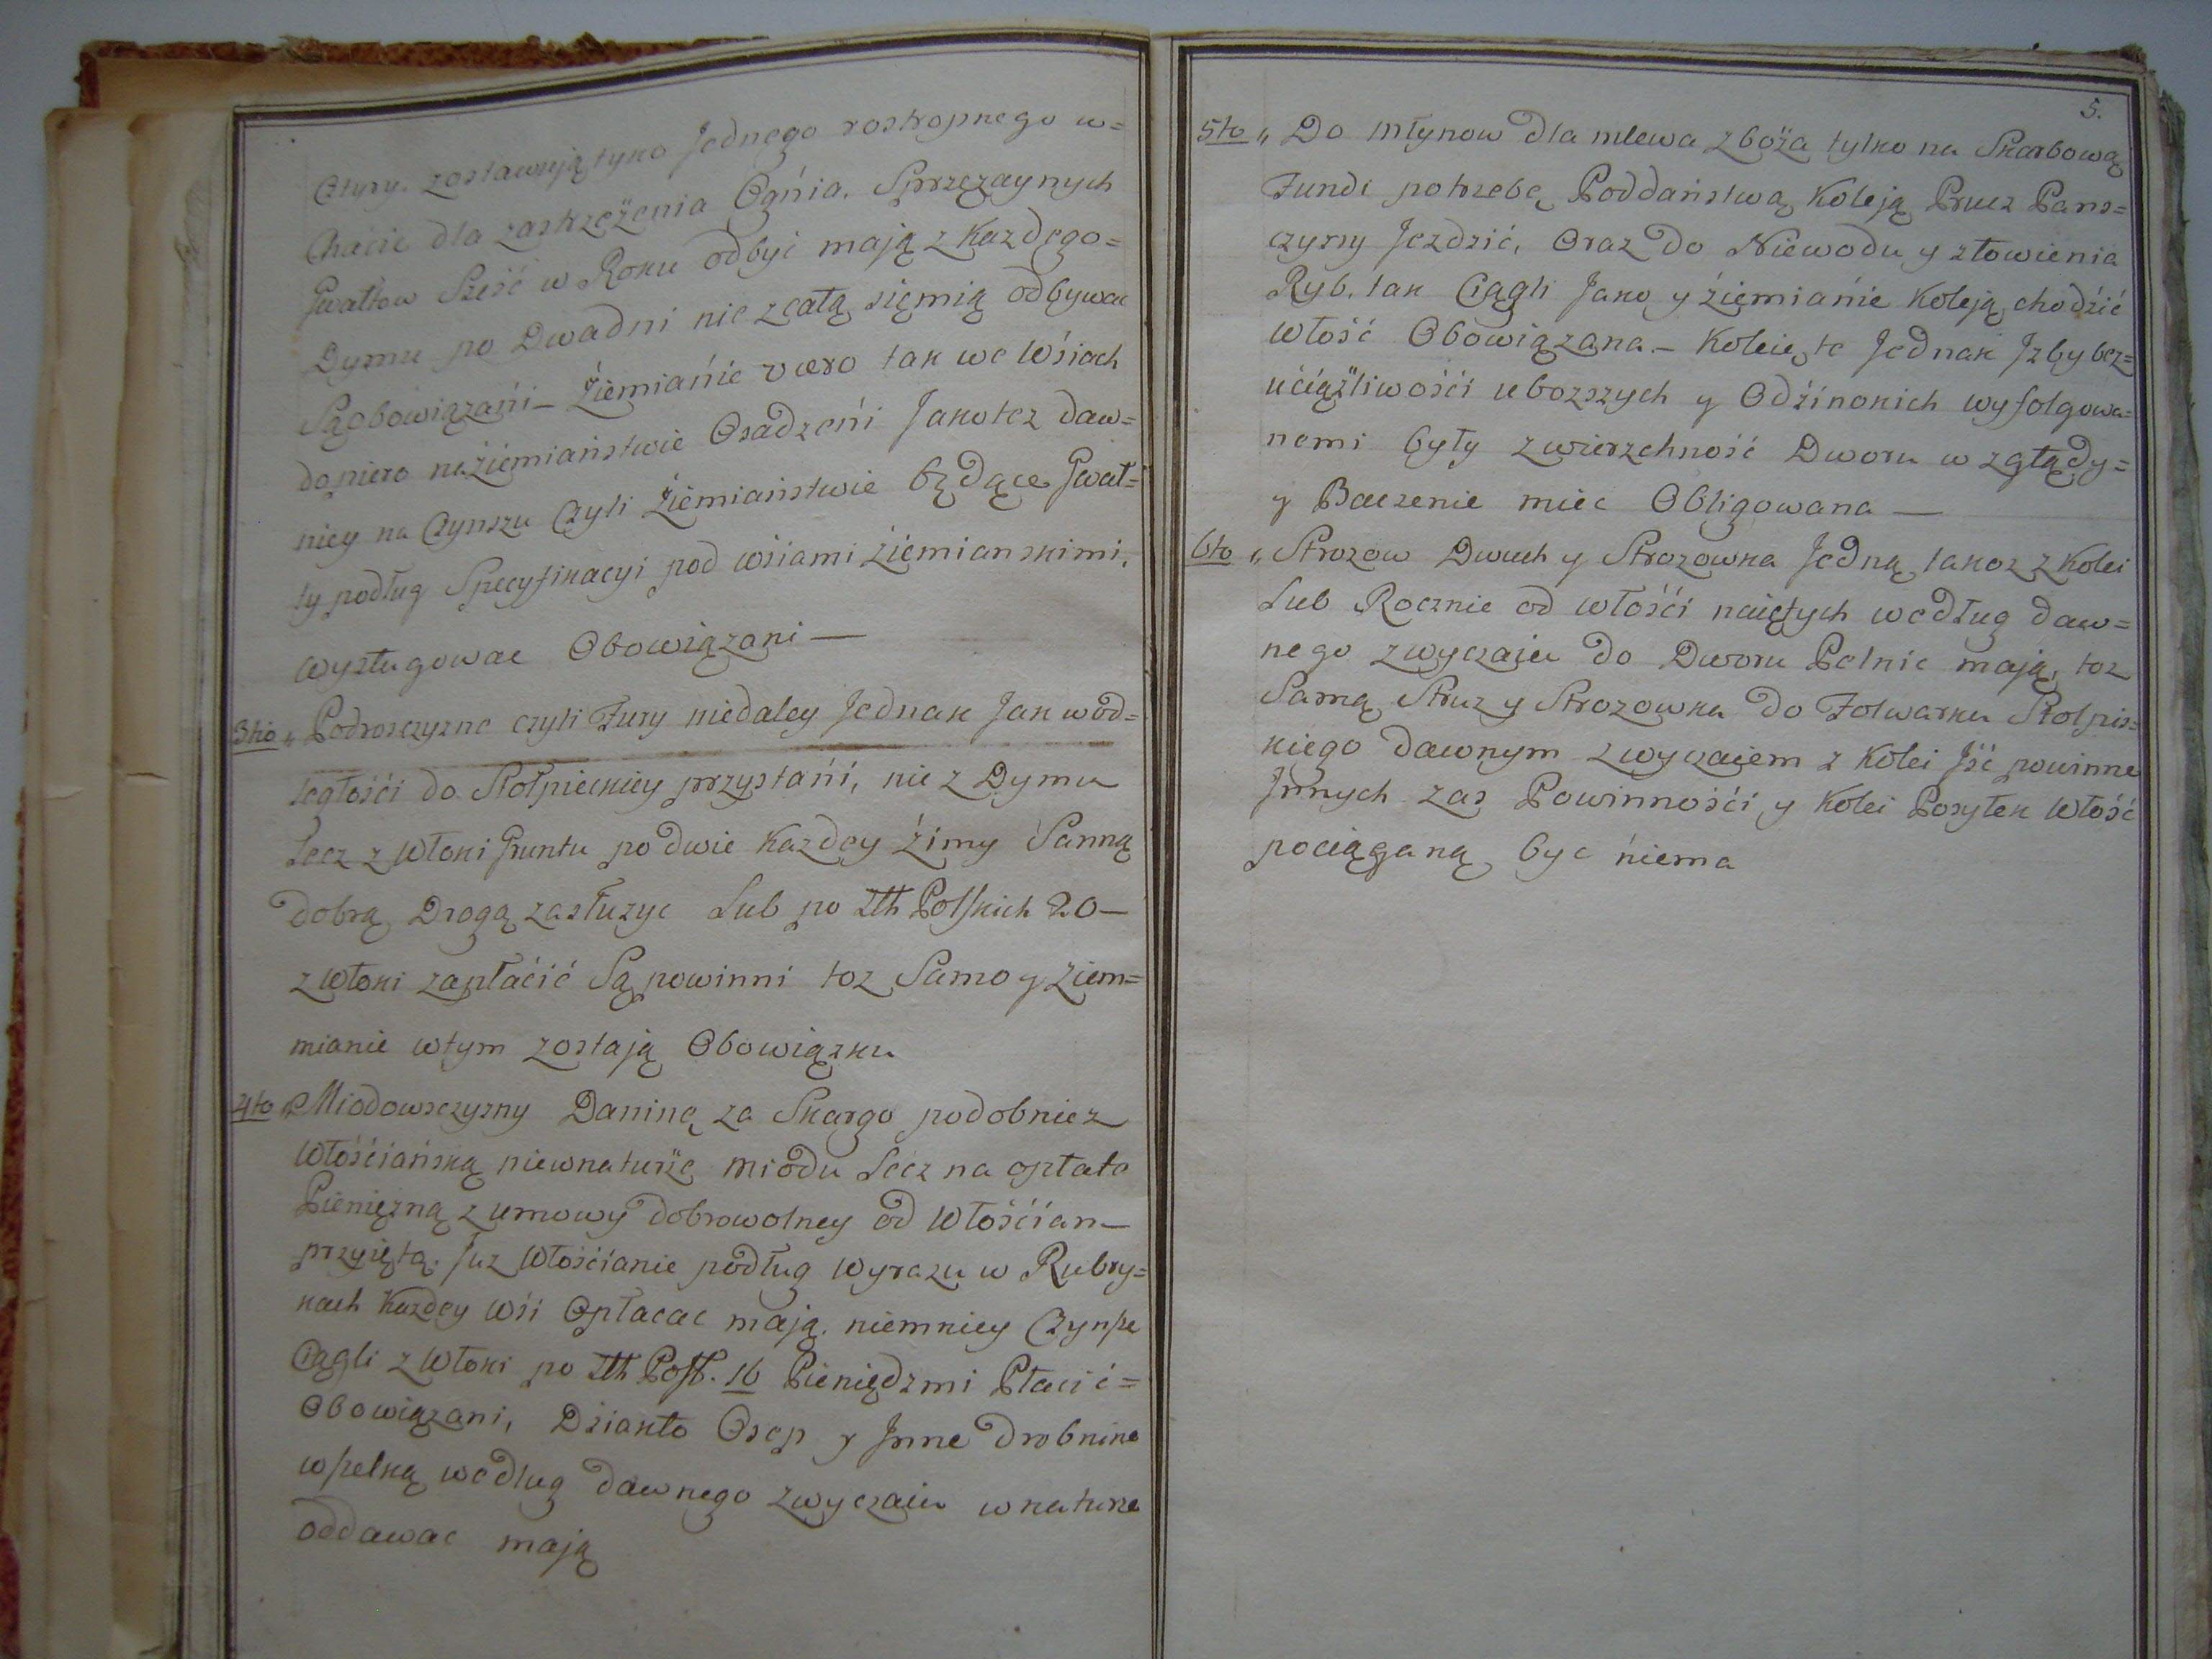 Ctyry. zostawują tyko Jednego rostropnego w=
Chacie dla zastrzeżenia Ognia. Sprzęzaynych
Gwałtow Sześć w Roku odbyć mają z Kazdego=
Dymu po Dwa dni nie z całą sięmią odbywac
Są obowiązańi — Źiemiańie vero tak we Wśiach
dopiero na źiemiaństwie Osadzeńi Jako tez daw=
niey na Czynszu Czyli Źiemiaństwie będące Gwał=
ty podług Specyfikacyi pod wśiami źiemianskimi,
wysługowac Obowiązani —
3tio „ Podroszczyzne czyli Fury niedaley Jednak Jak w od=
ległośći do Stołpieckiey przystańi, nie z Dymu
Lecz z Włoki Gruntu po dwie Kazdey Źimy Sanną
dobrą Drogą zasłuzyc Lub po Złł Polskich 20 —
z Włoki zapłaćić Są powinni toz Samo y Ziem=
mianie w tym zostają Obowiązku
4to „ Miodowszczyzny Daninę za Skargo podobniez
Włośćiańską niewnaturże miodu Lecz na opłate
Pieniężną z umowy dobrowolney od Włośćian —
przyiętą. Juz Włośćianie podług wyrazu w Rubry=
kach Kazdey Wśi Opłacac mają. niemniey Czynsze
Ciągli z Włoki po Złł Pols. 16 Pieniędzmi Płacić=
Obowiązani, Dziakło Osep y Jnne drobnine
wszelką według dawnego zwyczaiu w nature
oddawac mają
5.
5to „ Do młynow dla mlewa zboża tylko na Skarbową
Fundi potrzebę Poddaństwą Koleją Prucz Pans=
czyzny Jezdzić, Oraz do Niewodu y złowienia
Ryb. tak Ciągli Jako y źiemiańie Koleją chodźić
Włość Obowiązana. — Koleie te Jednak Jzby bez=
ućiążliwośći ubozszych y Odźinokich wyfolgowa=
nemi były zwierzchność Dworu wzglądy=
y Baczenie miec Obligowana —
6to „ Strozow Dwuch y Strozowka Jedną takoz z Kolei
Lub Rocznie od włośći naiętych według daw=
nego zwyczaiu do Dworu Pełnic mają, toz
Samą Struz y Strozowka do Folwarku Stolpis=
kiego dawnym zwyczaiem z Kolei Jść powinne
Jnnych zas Powinnośći y Kolei Posyłek Włość
pociąganą byc niema